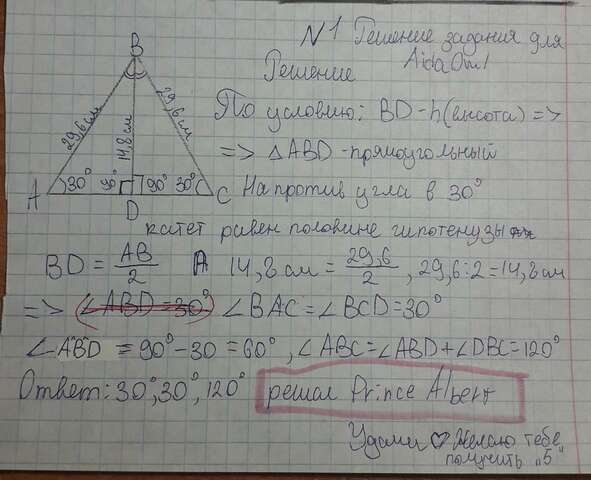 N1 Решение задания для
Aida Oml
Решение
B
29,6 см
29,6 см
14,8 см
A 30° 90° 90° 30° C
D
По условию: BD - h (высота) =>
=> △ABD - прямоугольный
Напротив угла в 30°
катет равен половине гипотенузы
BD = AB/2 14,8 см = 29,6/2, 29,6:2=14,8 см
=> (∠ABD = 30°) ∠BAC = ∠BCD = 30°
∠ABD = 90° - 30 = 60°, ∠ABC = ∠ABD + ∠DBC = 120°
Ответ: 30°, 30°, 120° решал Prince Albert
Удачи ♡ Желаю тебе
получить „5"